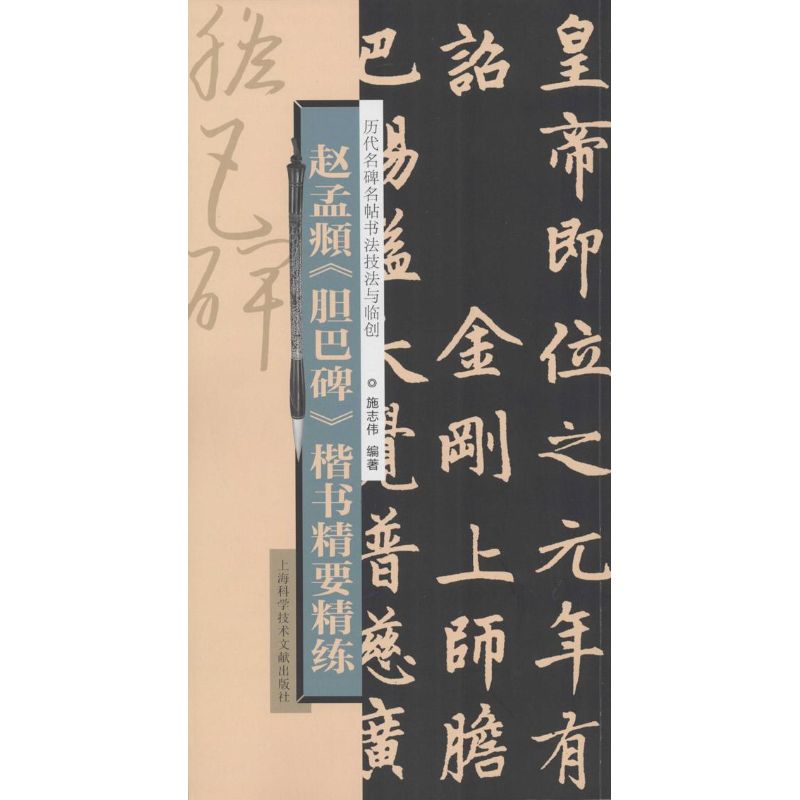 皇帝即位之元年有
詔金剛上師膽
巴賜謚大覺普慈廣
历代名碑名帖书法技法与临创
◎施志伟 编著
赵孟頫《胆巴碑》楷书精要精练
胆巴碑
上海科学技术文献出版社